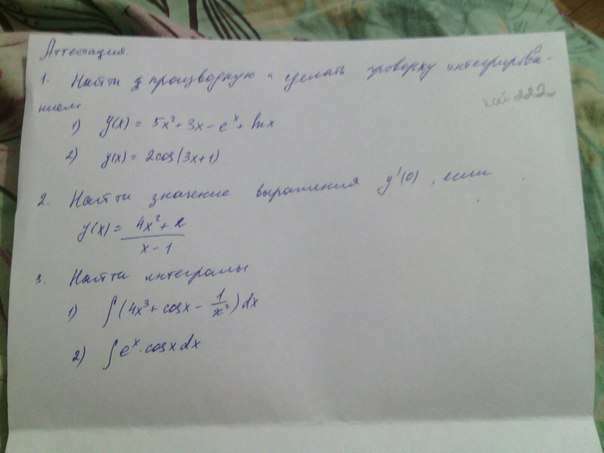 Аттестация.
1. Найти производную и сделать проверку интегрирова-
нием
1) y(x) = 5x² + 3x - eˣ + ln x
2) y(x) = 2cos(3x+1)
2. Найти значение выражения y'(0), если
y(x) = (4x² + 2)/(x - 1)
3. Найти интегралы
1) ∫(4x³ + cosx - 1/x²)dx
2) ∫eˣ·cosxdx